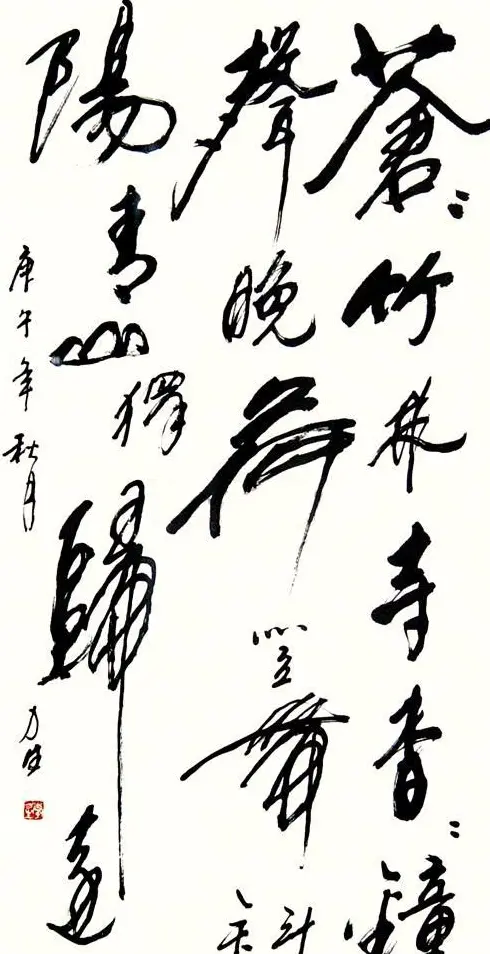 蒼〻竹林寺杳〻鐘
聲晚荷笠帶斜
陽青山獨歸遠
庚午年秋月